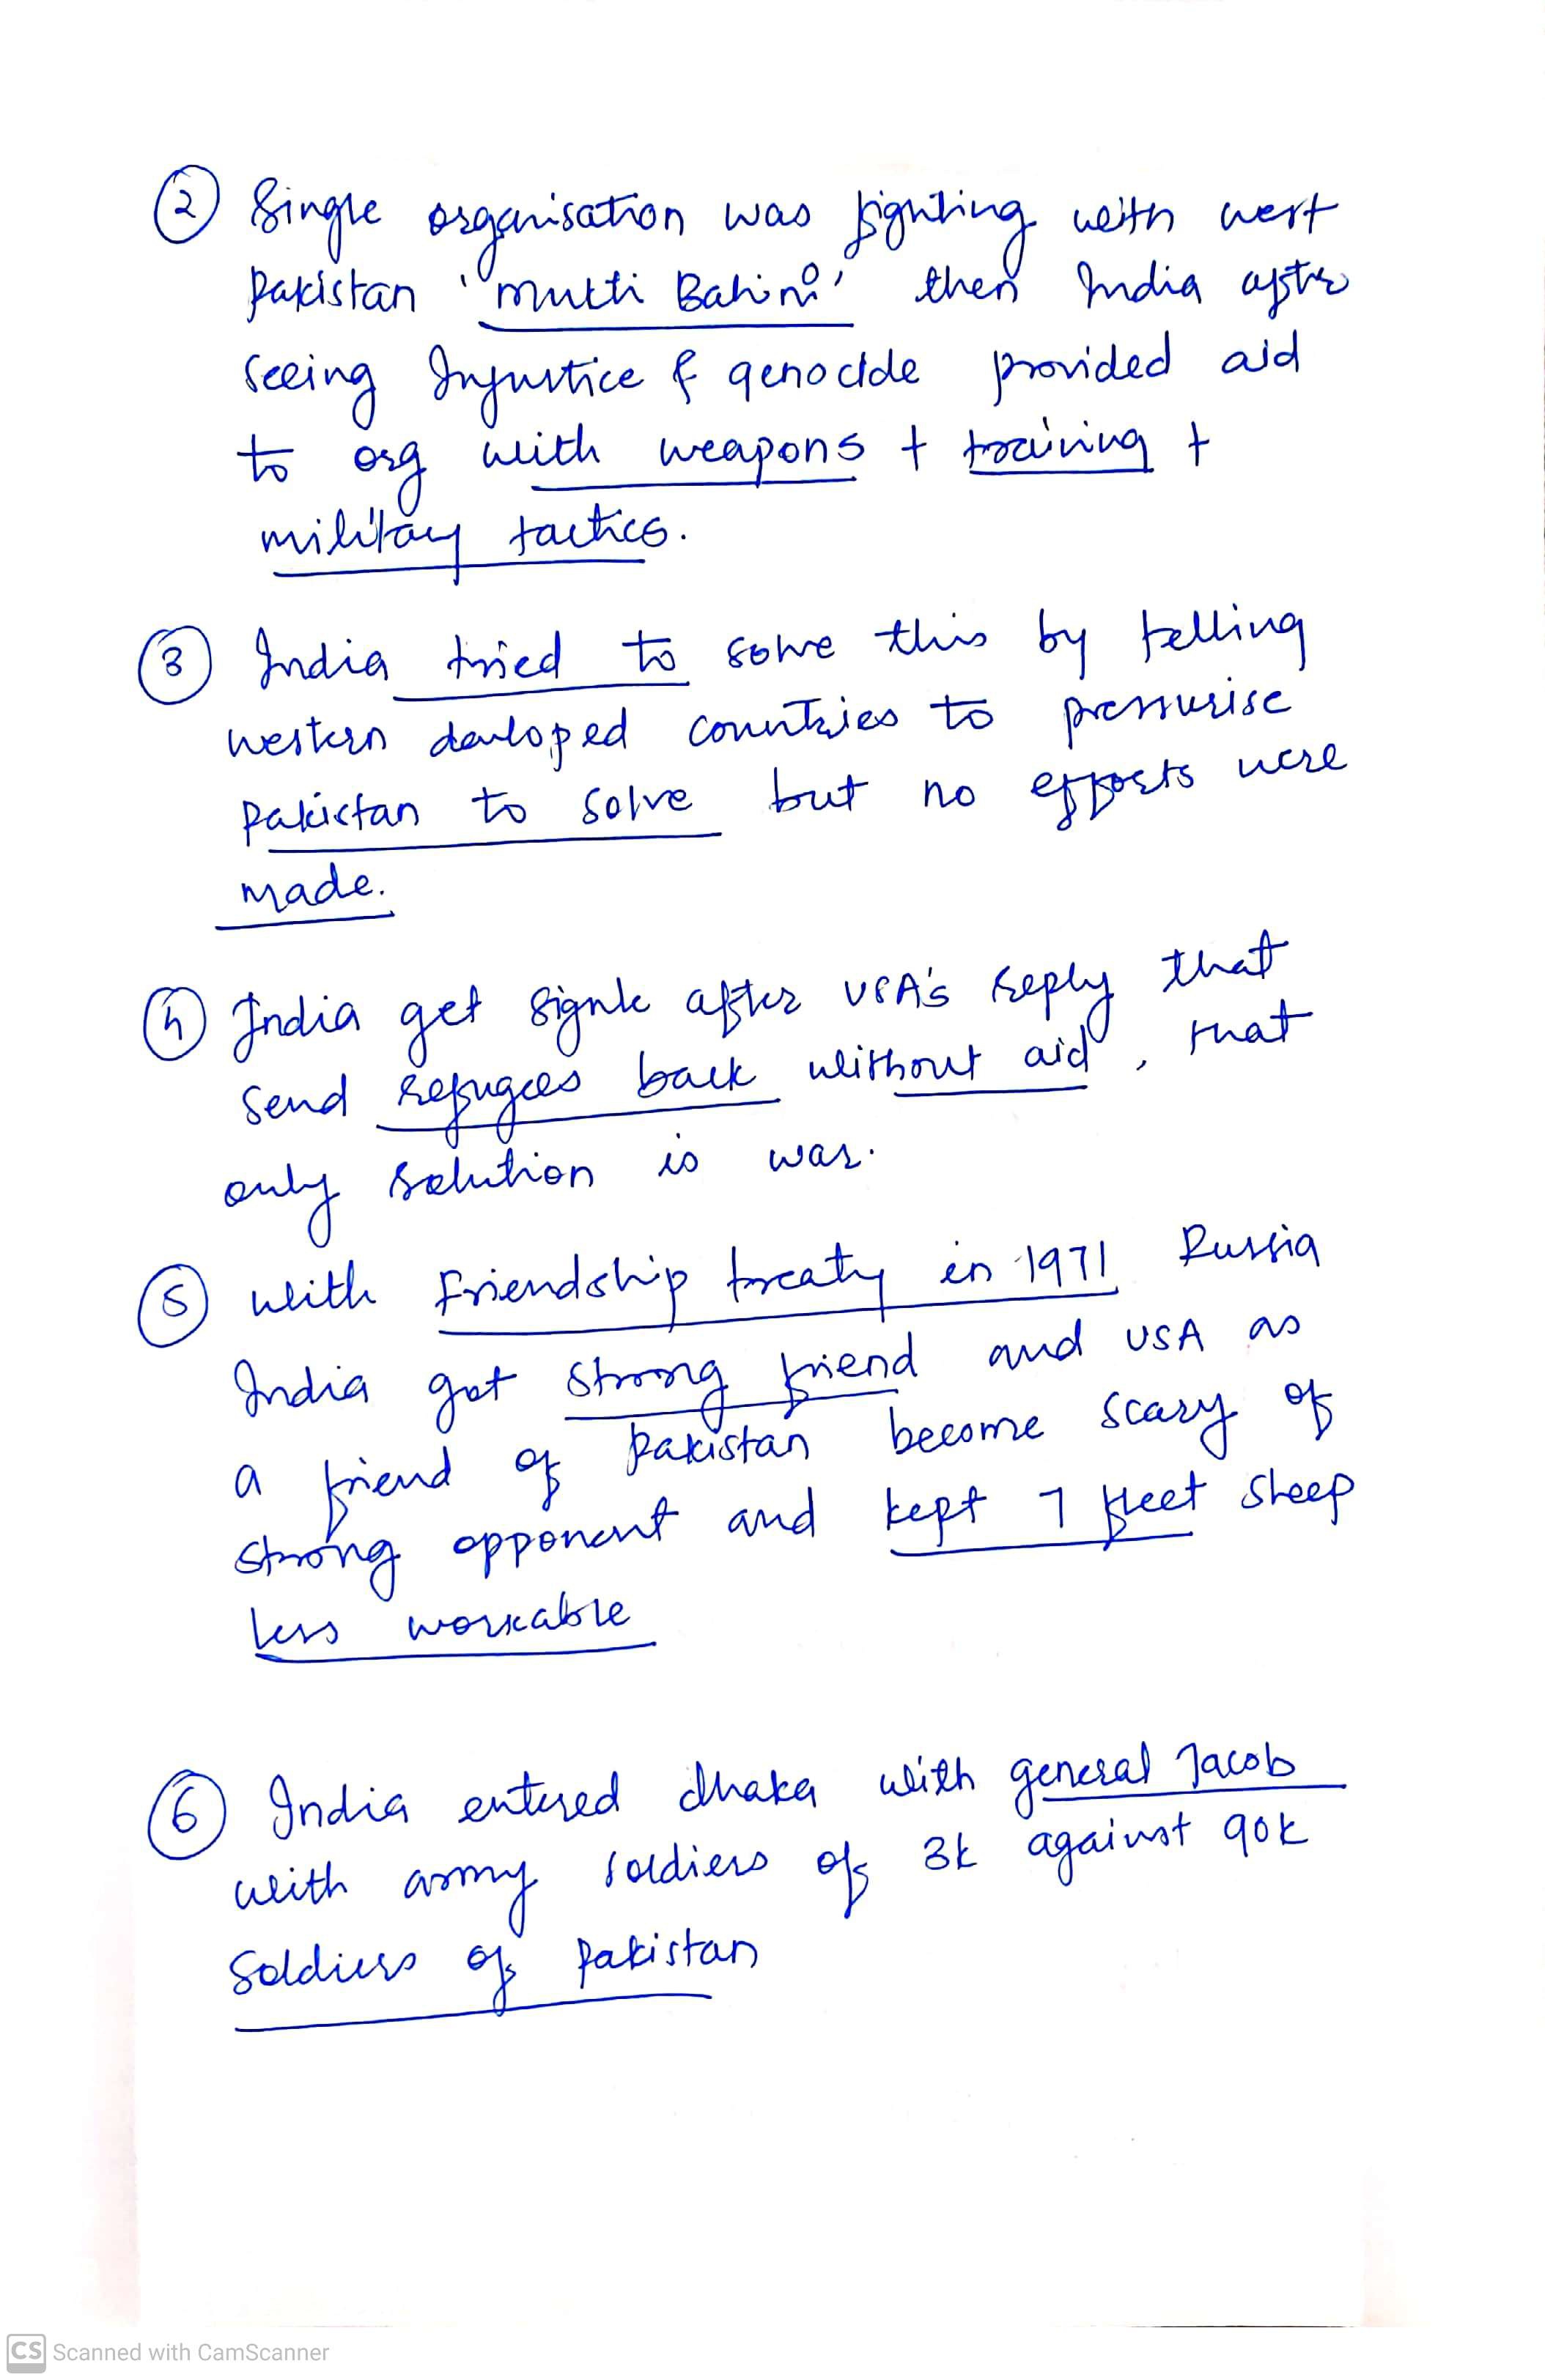 ② Single organisation was fighting with west
Pakistan "mukti Bahini' then India after
seeing Injustice & genocide provided aid
to org with weapons + training +
military tactics.
③ India tried to solve this by telling
western devloped countries to pressurise
Pakistan to solve but no efforts were
made.
④ India get signle after USA's reply that
send refugees back without aid, that
only solution is war.
⑤ with Friendship treaty in 1971 Russia
India got strong friend and USA as
a friend of Pakistan become scary of
strong opponent and kept 7 fleet sheep
less workable
⑥ India entered dhaka with general Jacob
with army soldiers of 3k against 90k
Soldiers of Pakistan
CS Scanned with CamScanner